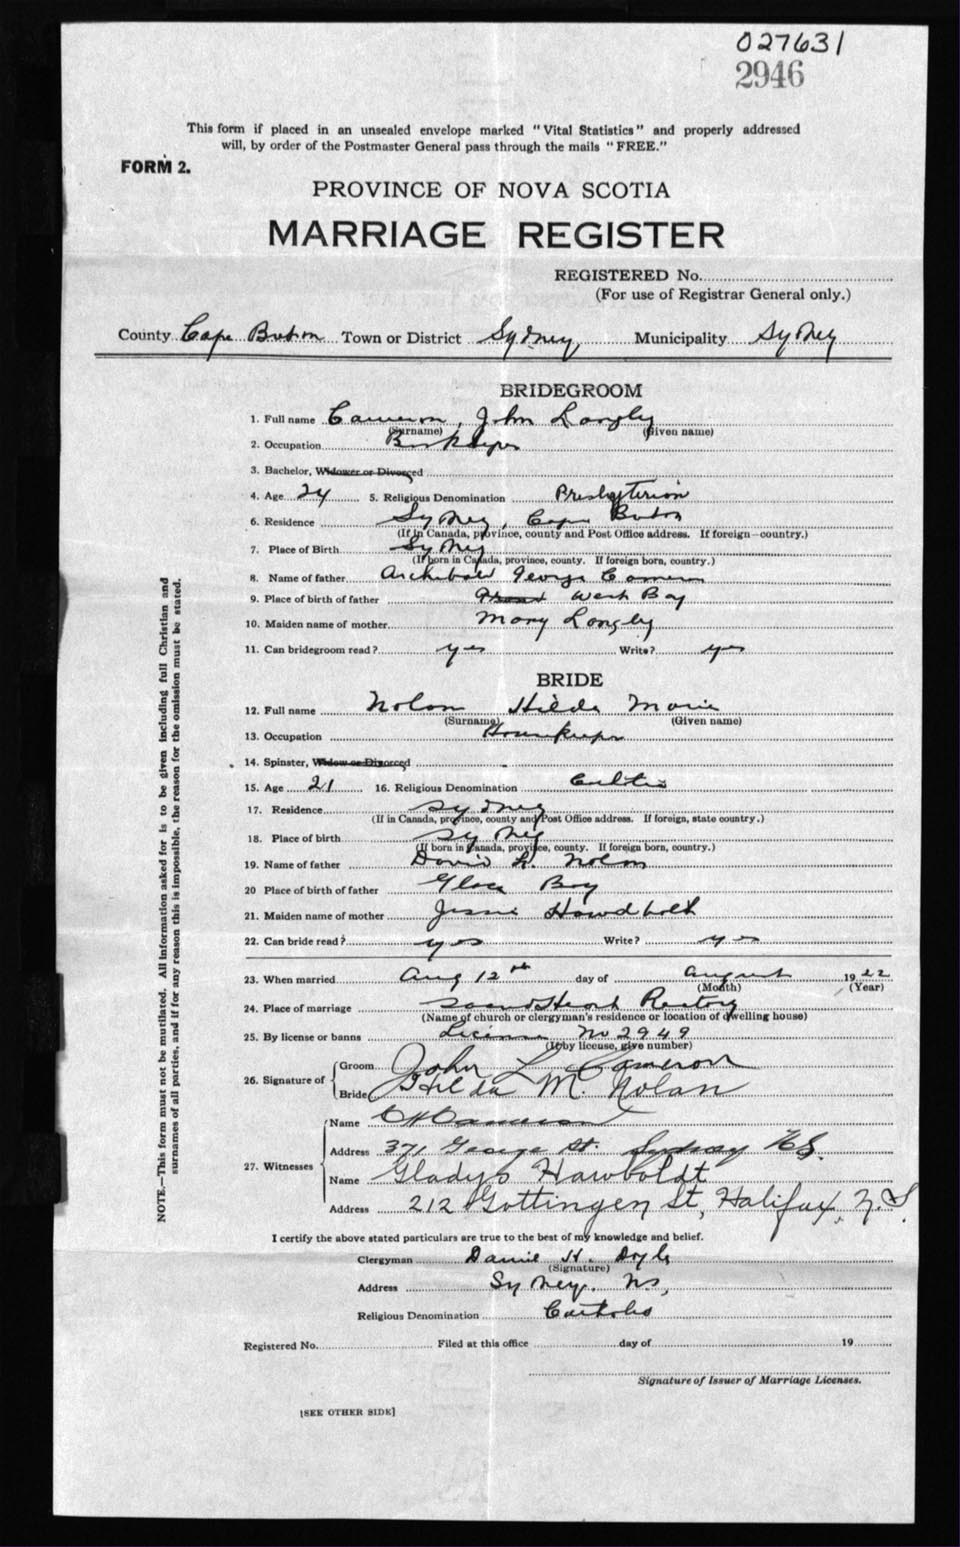 027631
2946
This form if placed in an unsealed envelope marked "Vital Statistics" and properly addressed
will, by order of the Postmaster General pass through the mails "FREE."
FORM 2.
PROVINCE OF NOVA SCOTIA
MARRIAGE REGISTER
REGISTERED No.
(For use of Registrar General only.)
County Cape Breton Town or District Sydney Municipality Sydney
BRIDEGROOM
1. Full name Cameron, John Longly
(Surname) (Given name)
2. Occupation
3. Bachelor, Widower or Divorced
4. Age 24 5. Religious Denomination Presbyterian
6. Residence Sydney, Cape Breton
(If in Canada, province, county and Post Office address. If foreign—country.)
7. Place of Birth Sydney
(If born in Canada, province, county. If foreign born, country.)
8. Name of father Archibald George Cameron
9. Place of birth of father West Bay
10. Maiden name of mother Mary Longly
11. Can bridegroom read? yes Write? yes
BRIDE
12. Full name Nolan Hilda Marie
(Surname) (Given name)
13. Occupation Housekeeper
14. Spinster, Widow or Divorced
15. Age 21 16. Religious Denomination Catholic
17. Residence Sydney
(If in Canada, province, county and Post Office address. If foreign, state country.)
18. Place of birth Sydney
(If born in Canada, province, county. If foreign born, country.)
19. Name of father David A. Nolan
20 Place of birth of father Glace Bay
21. Maiden name of mother Jessie
22. Can bride read? yes Write? yes
23. When married Aug 12th day of August 1922
(Month) (Year)
24. Place of marriage Sacred Heart Rectory
(Name of church or clergyman's residence or location of dwelling house)
25. By license or banns License No 2949
(If by license, give number)
26. Signature of Groom John L Cameron
Bride Hilda M. Nolan
27. Witnesses Name Cameron
Address 371 George St. Sydney N.S.
Name Gladys Hawboldt
Address 212 Gottingen St, Halifax, N.S.
I certify the above stated particulars are true to the best of my knowledge and belief.
Clergyman Daniel H. Doyle
(Signature)
Address Sydney, NS,
Religious Denomination Catholic
Registered No. Filed at this office day of 19
Signature of Issuer of Marriage Licenses.
[SEE OTHER SIDE]
NOTE.—This form must not be mutilated. All information asked for is to be given including full Christian and
surnames of all parties, and if for any reason this is impossible, the reason for the omission must be stated.